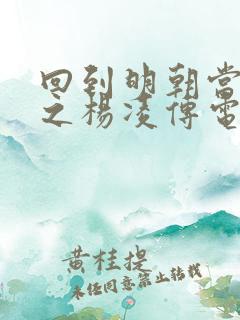 回到明朝当
之杨凌传电
黄桂提
未经同意禁止转载